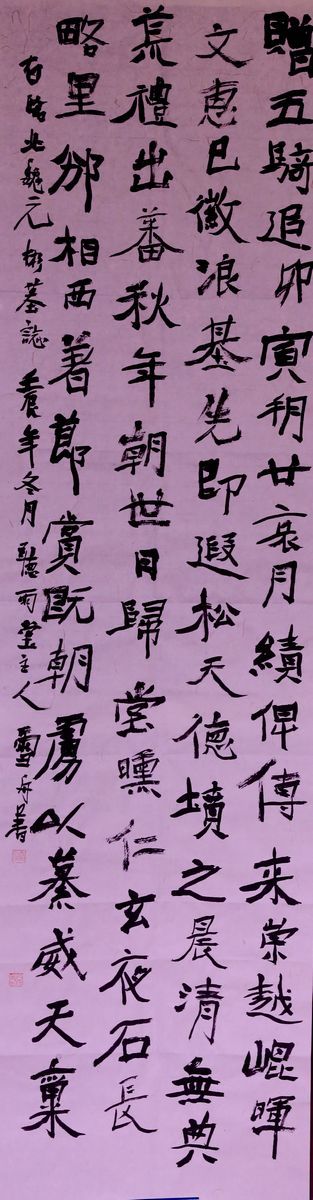 贈五騎追卯寅朔廿哀月績俾傳来崇越崐暉
文惠已徽浪基先即遐松天德墳之晨清無典
荒禮出蕃秋年朝世日歸堂曛仁玄夜石長
略里邠相西着節賞既朝虜以綦威天稟
右臨北魏元彬墓誌 壬辰年冬月 聽雨堂主人 雪舟書